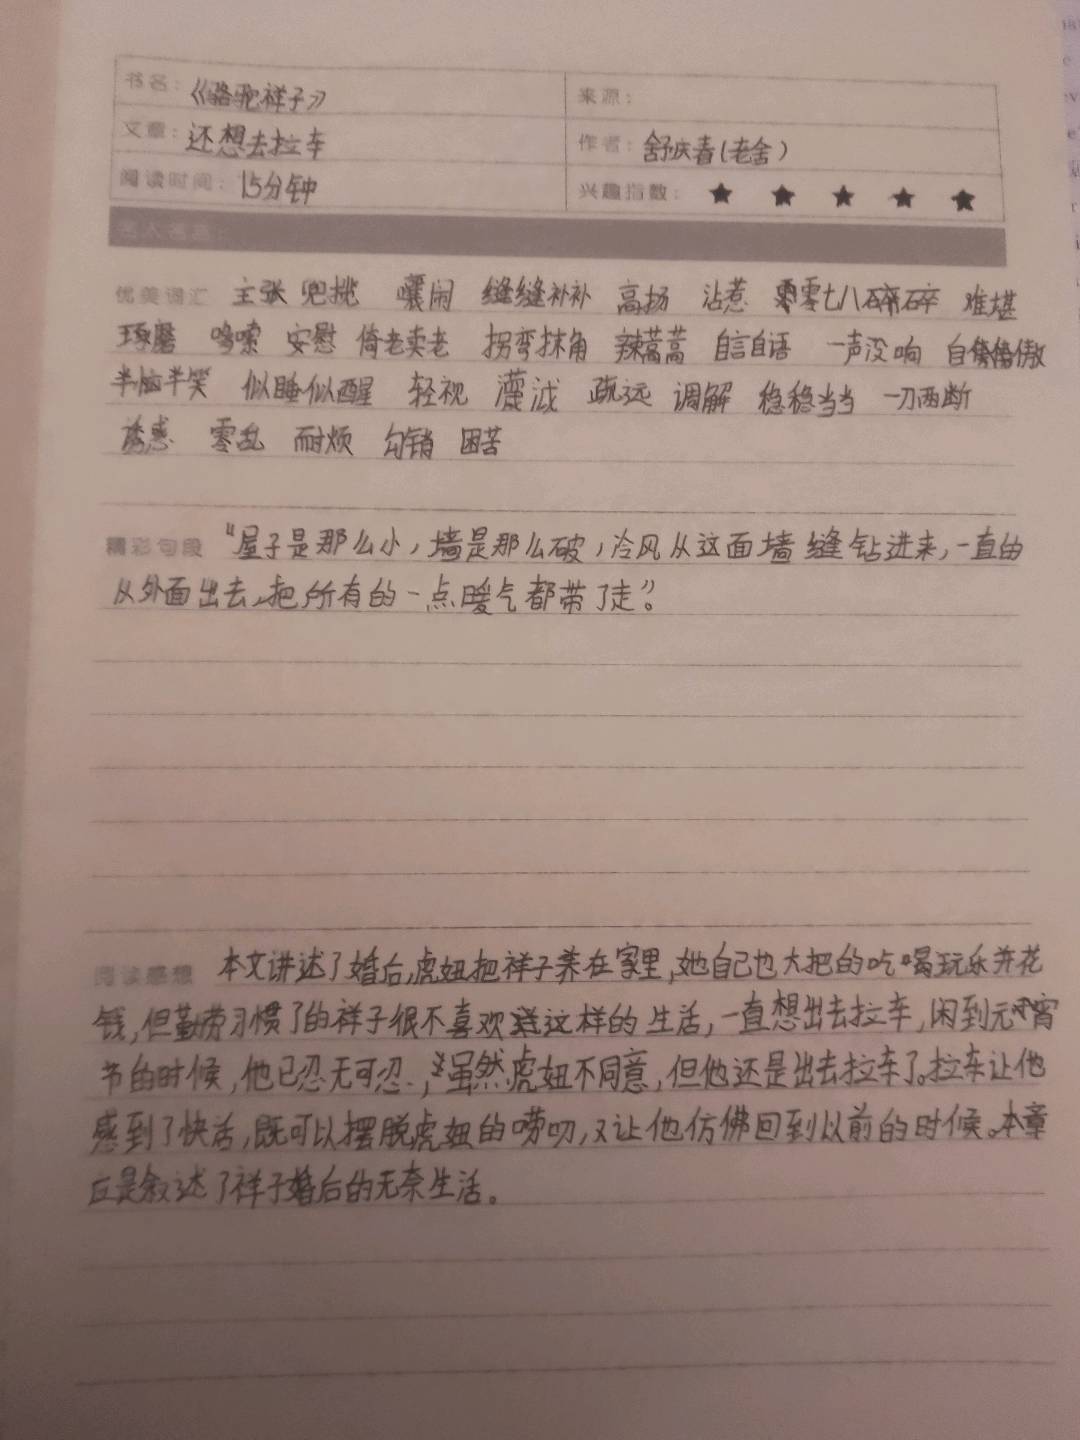 书名：《骆驼祥子》 来源：
文章：还想去拉车 作者：舒庆春（老舍）
阅读时间：15分钟 兴趣指数：★ ★ ★ ★ ★
优美词汇 主张 兜挑 嚷闹 缝缝补补 高扬 沾惹 零七八碎 难堪
琢磨 哆嗦 安慰 倚老卖老 拐弯抹角 辣蒿蒿 自言自语 一声没响 自傲
半恼半笑 似睡似醒 轻视 疏远 调解 稳稳当当 一刀两断
诱惑 零乱 耐烦 勾销 困苦
精彩句段 “屋子是那么小，墙是那么破，冷风从这面墙缝钻进来，一直的
从外面出去，把所有的一点暖气都带了走”。
阅读感想 本文讲述了婚后，虎妞把祥子养在家里，她自己也大把的吃喝玩乐并花
钱，但勤劳习惯了的祥子很不喜欢这样的生活，一直想出去拉车，闲到元宵
节的时候，他已忍无可忍，虽然虎妞不同意，但他还是出去拉车了。拉车让他
感到了快活，既可以摆脱虎妞的唠叨，又让他仿佛回到以前的时候。本章
是叙述了祥子婚后的无奈生活。